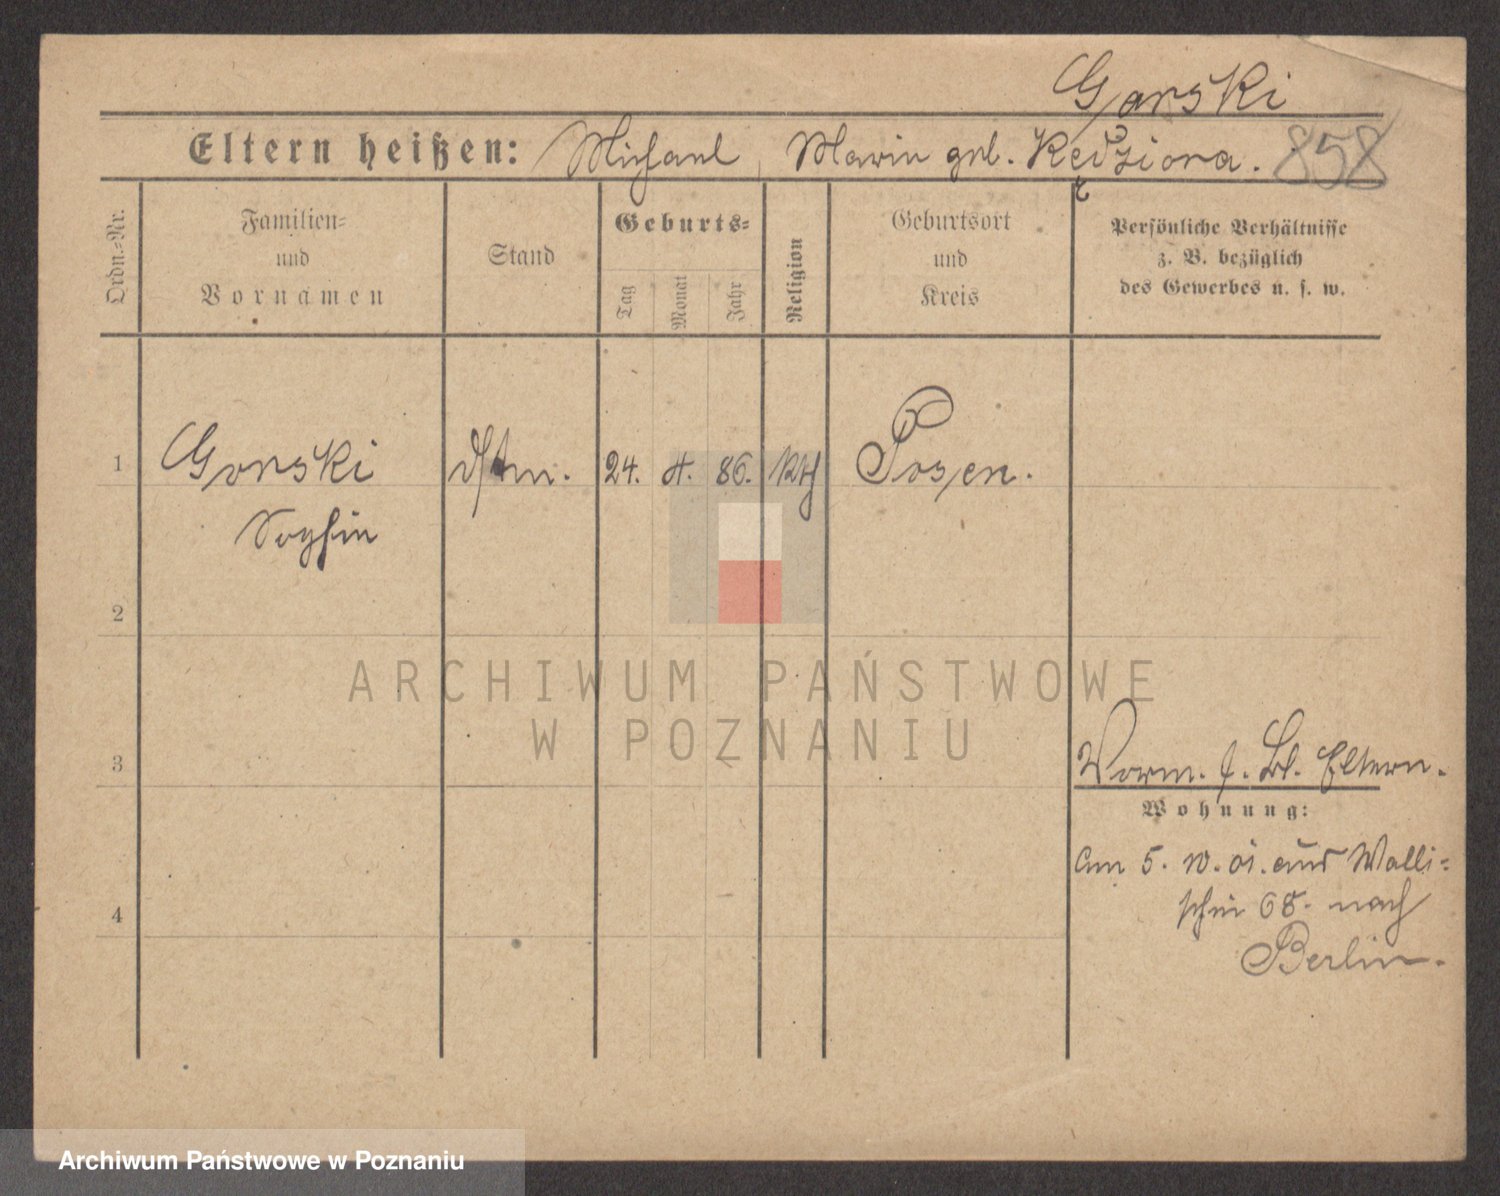 Gorski
Eltern heißen: Michael, Marie geb. Kędziora. 858
Ordn.-Nr.
Familien-
und
Vornamen
Stand
Geburts-
Tag
Monat
Jahr
Religion
Geburtsort
und
Kreis
Persönliche Verhältnisse
z. B. bezüglich
des Gewerbes u. s. w.
1 Gorski 24. 4. 86. kth Posen.
Sophie
2
ARCHIWUM PAŃSTWOWE
W POZNANIU
3
Vorm. s. Bl. Eltern.
Wohnung:
Am 5. 10. 01. aus Walli-
schei 68. nach
4
Berlin.
Archiwum Państwowe w Poznaniu